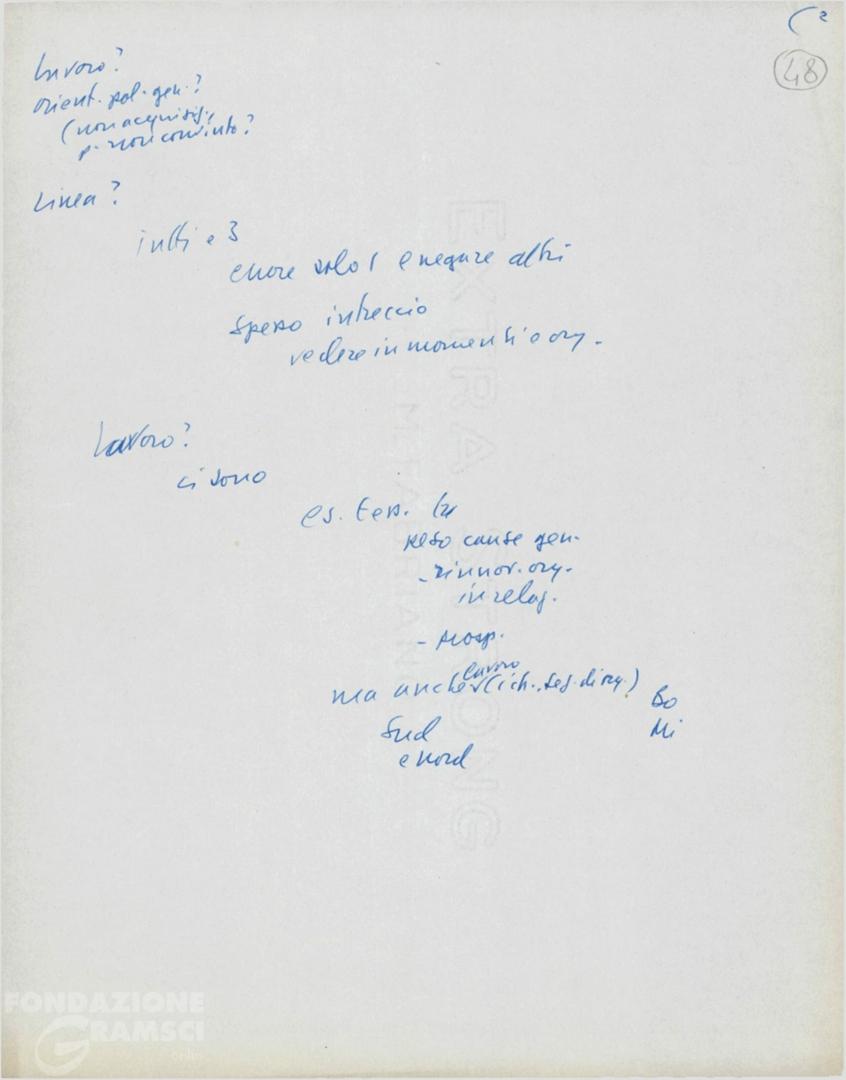 C²
48
Lavoro?
orient. pol. gen.?
(non acquisiz.
p. non convinto?
Linea?
tutti e 3
errore solo 1 e negare altri
spesso intreccio
vedere in momenti e org.
Lavoro?
ci sono
es. tess.
peso cause gen.
- rinnov. org.
in relaz.
- prosp.
lavoro
ma anche (ich., seg. di org.)
Bo
Sud
Mi
e Nord
EXTRA STRONG
FABRIANO
FONDAZIONE
GRAMSCI